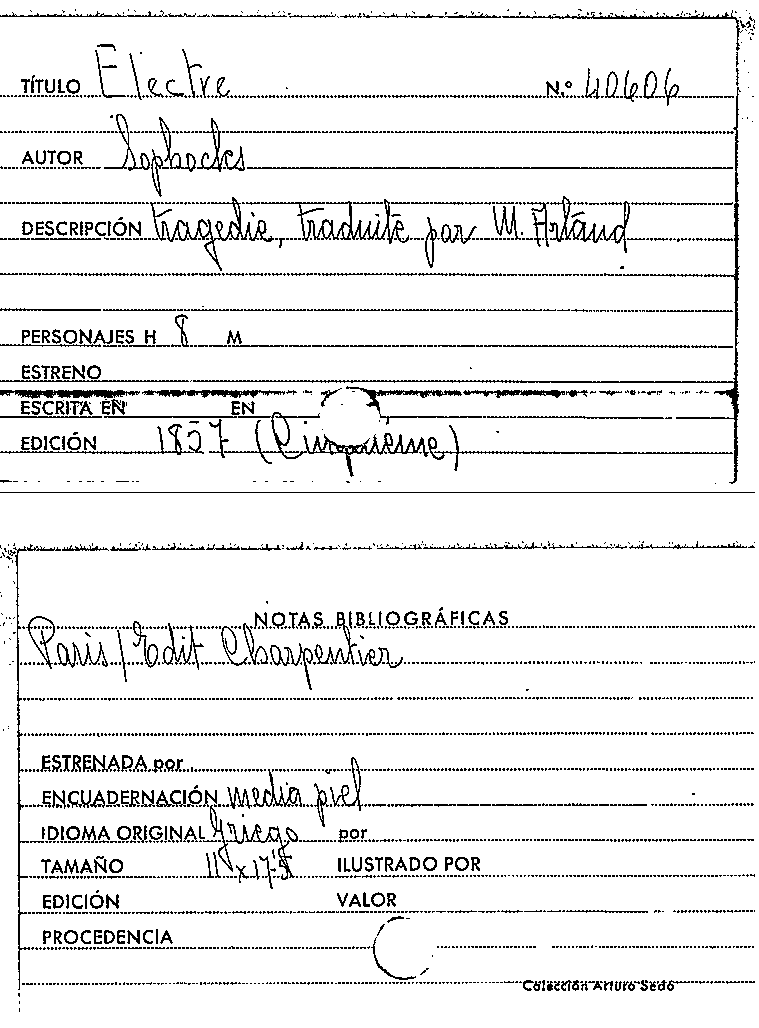 TÍTULO Electre N.º 40606
AUTOR Sophocles
DESCRIPCIÓN tragedie, traduite par M. Artaud
PERSONAJES H 8 M
ESTRENO
ESCRITA EN EN
EDICIÓN 1857 (Cinquieme)
NOTAS BIBLIOGRÁFICAS
Paris / Edit Charpentier
ESTRENADA por
ENCUADERNACIÓN media piel
IDIOMA ORIGINAL griego por
TAMAÑO ILUSTRADO POR
EDICIÓN VALOR
PROCEDENCIA
Colección Arturo Sedó